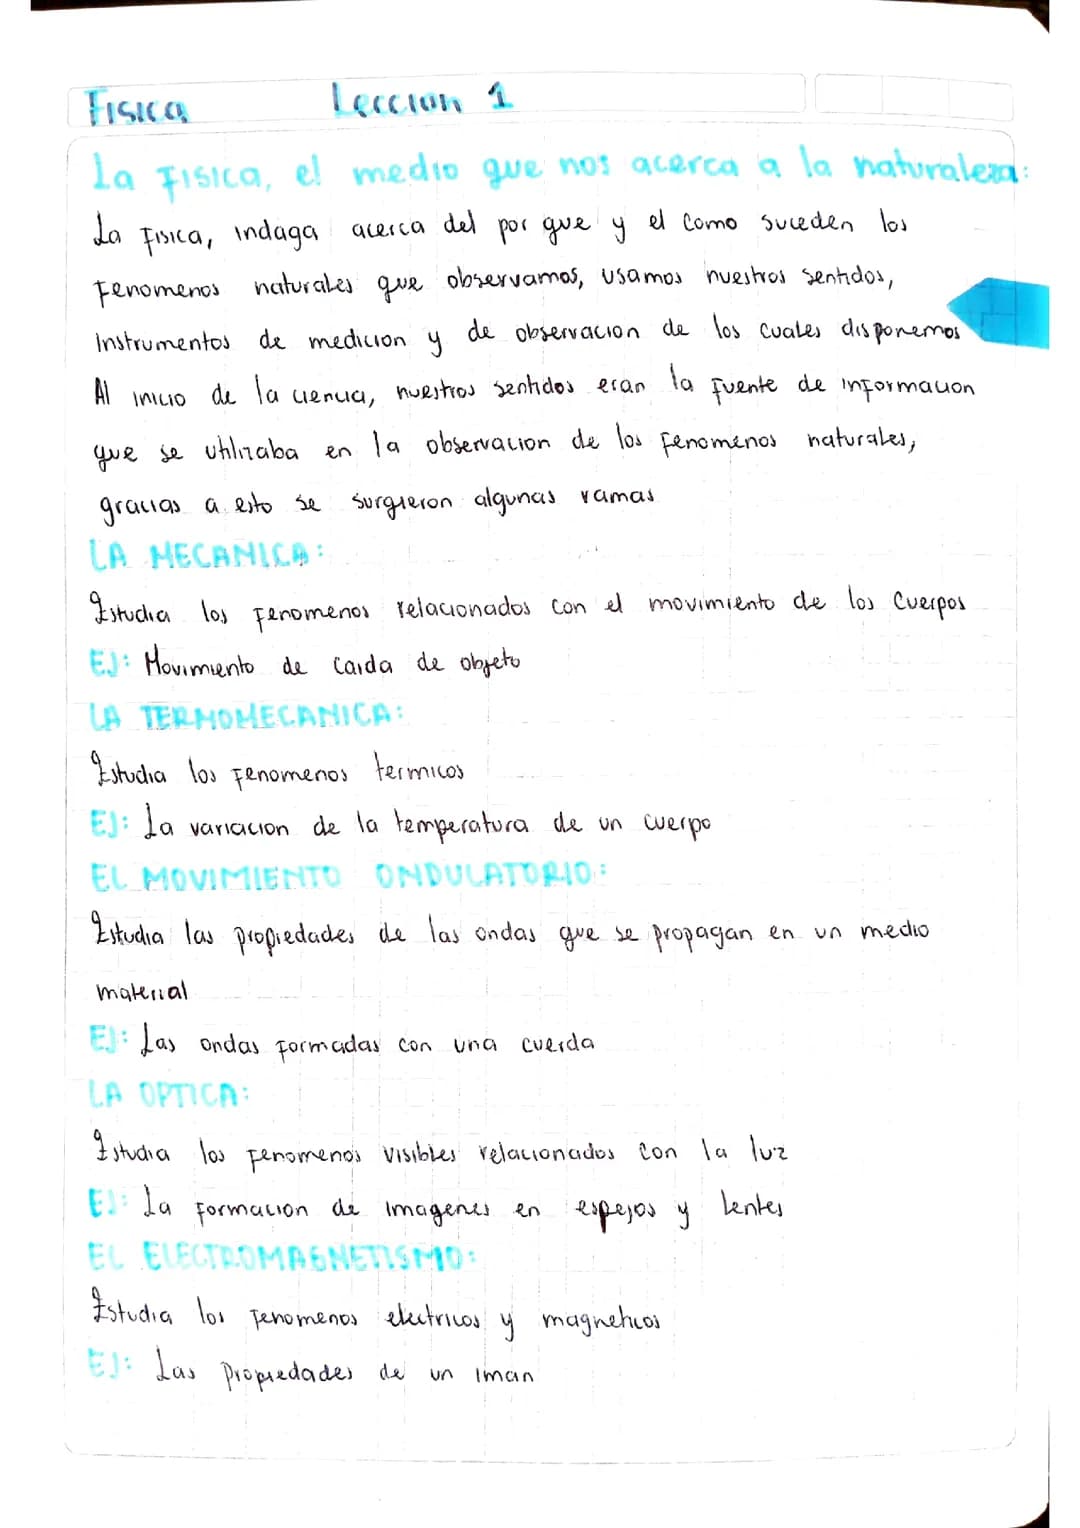 Fisica Leccion 1
La Fisica, el medio que nos acerca a la naturaleza:
La Fisica, indaga acerca del por que y el como suceden los
Fenomenos naturales que observamos, usamos nuestros sentidos,
instrumentos de medicion y de observacion de los cuales disponemos
Al inicio de la ciencia, nuestros sentidos eran la fuente de informacion
que se utilizaba en la observacion de los fenomenos naturales,
gracias a esto se surgieron algunas ramas
LA MECANICA:
Estudia los Fenomenos relacionados con el movimiento de los Cuerpos
EJ: Movimiento de caida de objeto
LA TERMOMECANICA:
Estudia los Fenomenos termicos
EJ: La variacion de la temperatura de un cuerpo
EL MOVIMIENTO ONDULATORIO:
Estudia las propiedades de las ondas que se propagan en un medio
material
EJ: Las ondas formadas con una cuerda
LA OPTICA:
Estudia los fenomenos visibles relacionados con la luz
EJ: La formacion de imagenes en espejos y lentes
EL ELECTROMAGNETISMO:
Estudia los Fenomenos electricos y magneticos
EJ: Las propiedades de un iman